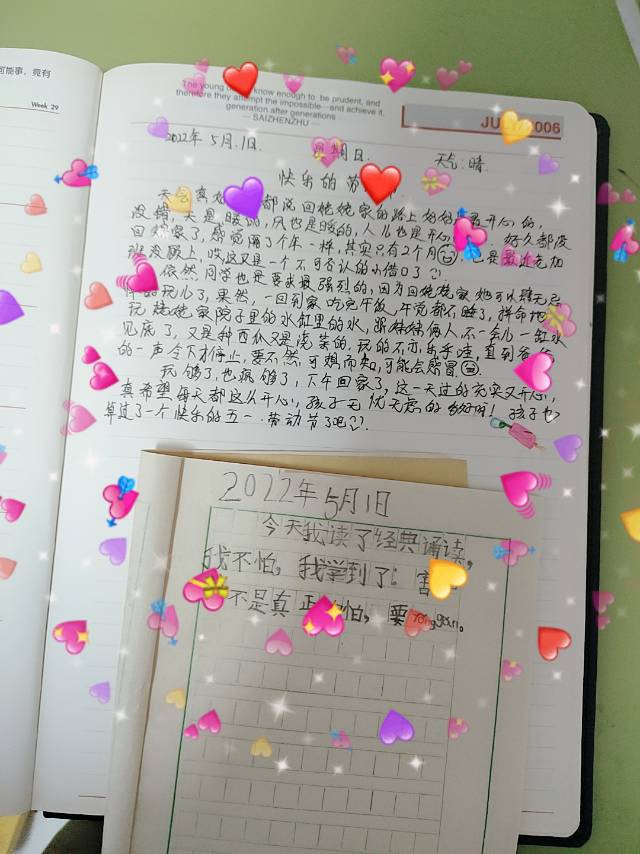 可能事，竟有
Week 29
The young know enough to be prudent, and
therefore they attempt the impossible—and achieve it,
generation after generations
— SAIZHENZHU —
JU 006
2022年 5月.1日. 星期日. 天气:晴.
快乐的劳
天气真 都说回姥姥家的路上 开心的,
没错,天是暖的,风也是暖的,人儿也是开心 . 好久都没
回 家了,感觉隔了个年一样,其实只有2个月 也是最近老加
班没顾上,哎,这又是一个不可否认的小借口了
依然同学也是要求最强烈的,因为回姥姥家她可以肆无忌
惮的玩儿了,果然,一回到家吃完午饭,午觉都不睡了,拼命地
玩姥姥家院子里的水缸里的水,跟妹妹俩人,不一会儿一缸水
见底了,又是种西瓜又是浇菜的,玩的不亦乐乎哇,直到爸爸
的一声令下才停止,要不然,可想而知,可能会感冒
玩够了,也疯够了,下午回家了,这一天过的充实又开心,
真希望每天都这么开心,孩子无忧无虑的多好啊! 孩子也
算过了一个快乐的五一.劳动节了吧
2022年5月1日
今天我读了经典诵读,
我不怕,我学到了: 害
不是真正 怕,要yǒnggǎn。